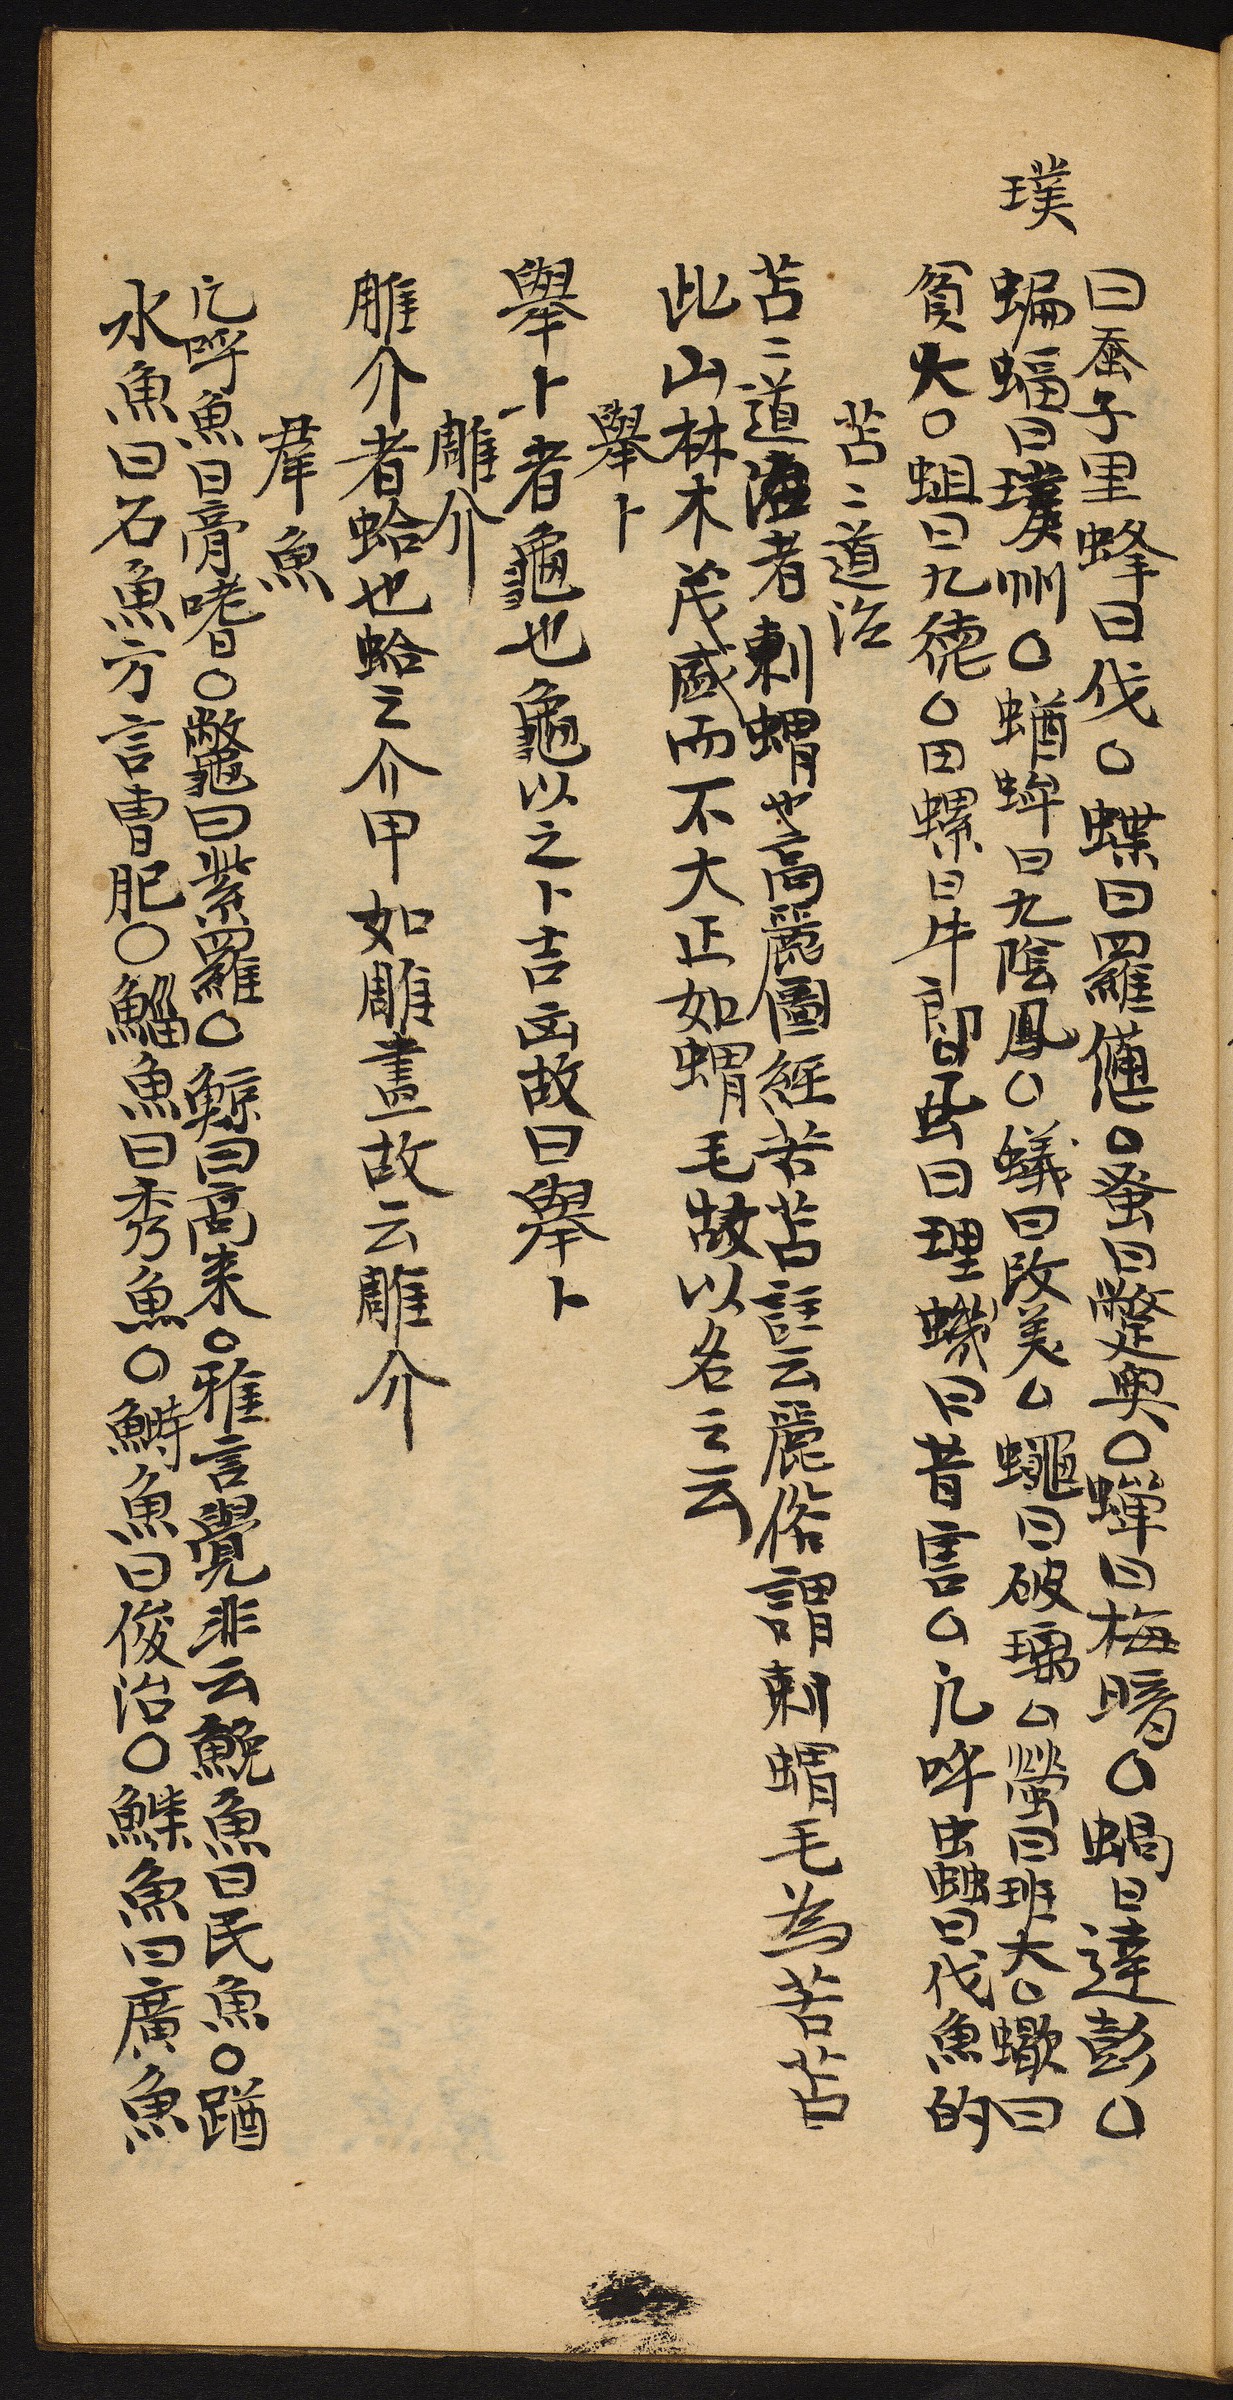 璞
曰蚕子里蜂曰伐○蝶曰羅僊○蚤曰鼈輿○蟬曰梅暗○蝸曰達彭○
蝙蝠曰璞州○蝤蛑曰九陰鳳○蟻曰改美○蠅曰破璃○螢曰班大○蠍曰
貧大○蛆曰九德○田螺曰牛郎虱曰理蟣曰昔害○凡呼虫蝴曰伐魚的
苦〻道治
苦〻道治者刺蝟也高麗圖經苦苫註云麗俗謂刺蝟毛為苦苫
此山林木茂盛而不大正如蝟毛故以名之云
舉卜
舉卜者龜也龜以之卜吉凶故曰舉卜
雕介
雕介者蛤也蛤之介甲如雕畫故云雕介
羣魚
凡呼魚曰膏嗜○鼈曰紫羅○鯨曰高来○雅言覺非云鮸魚曰民魚○蹭
水魚曰石魚方言曺肥○鯔魚曰秀魚○鰣魚曰俊治○鰈魚曰廣魚